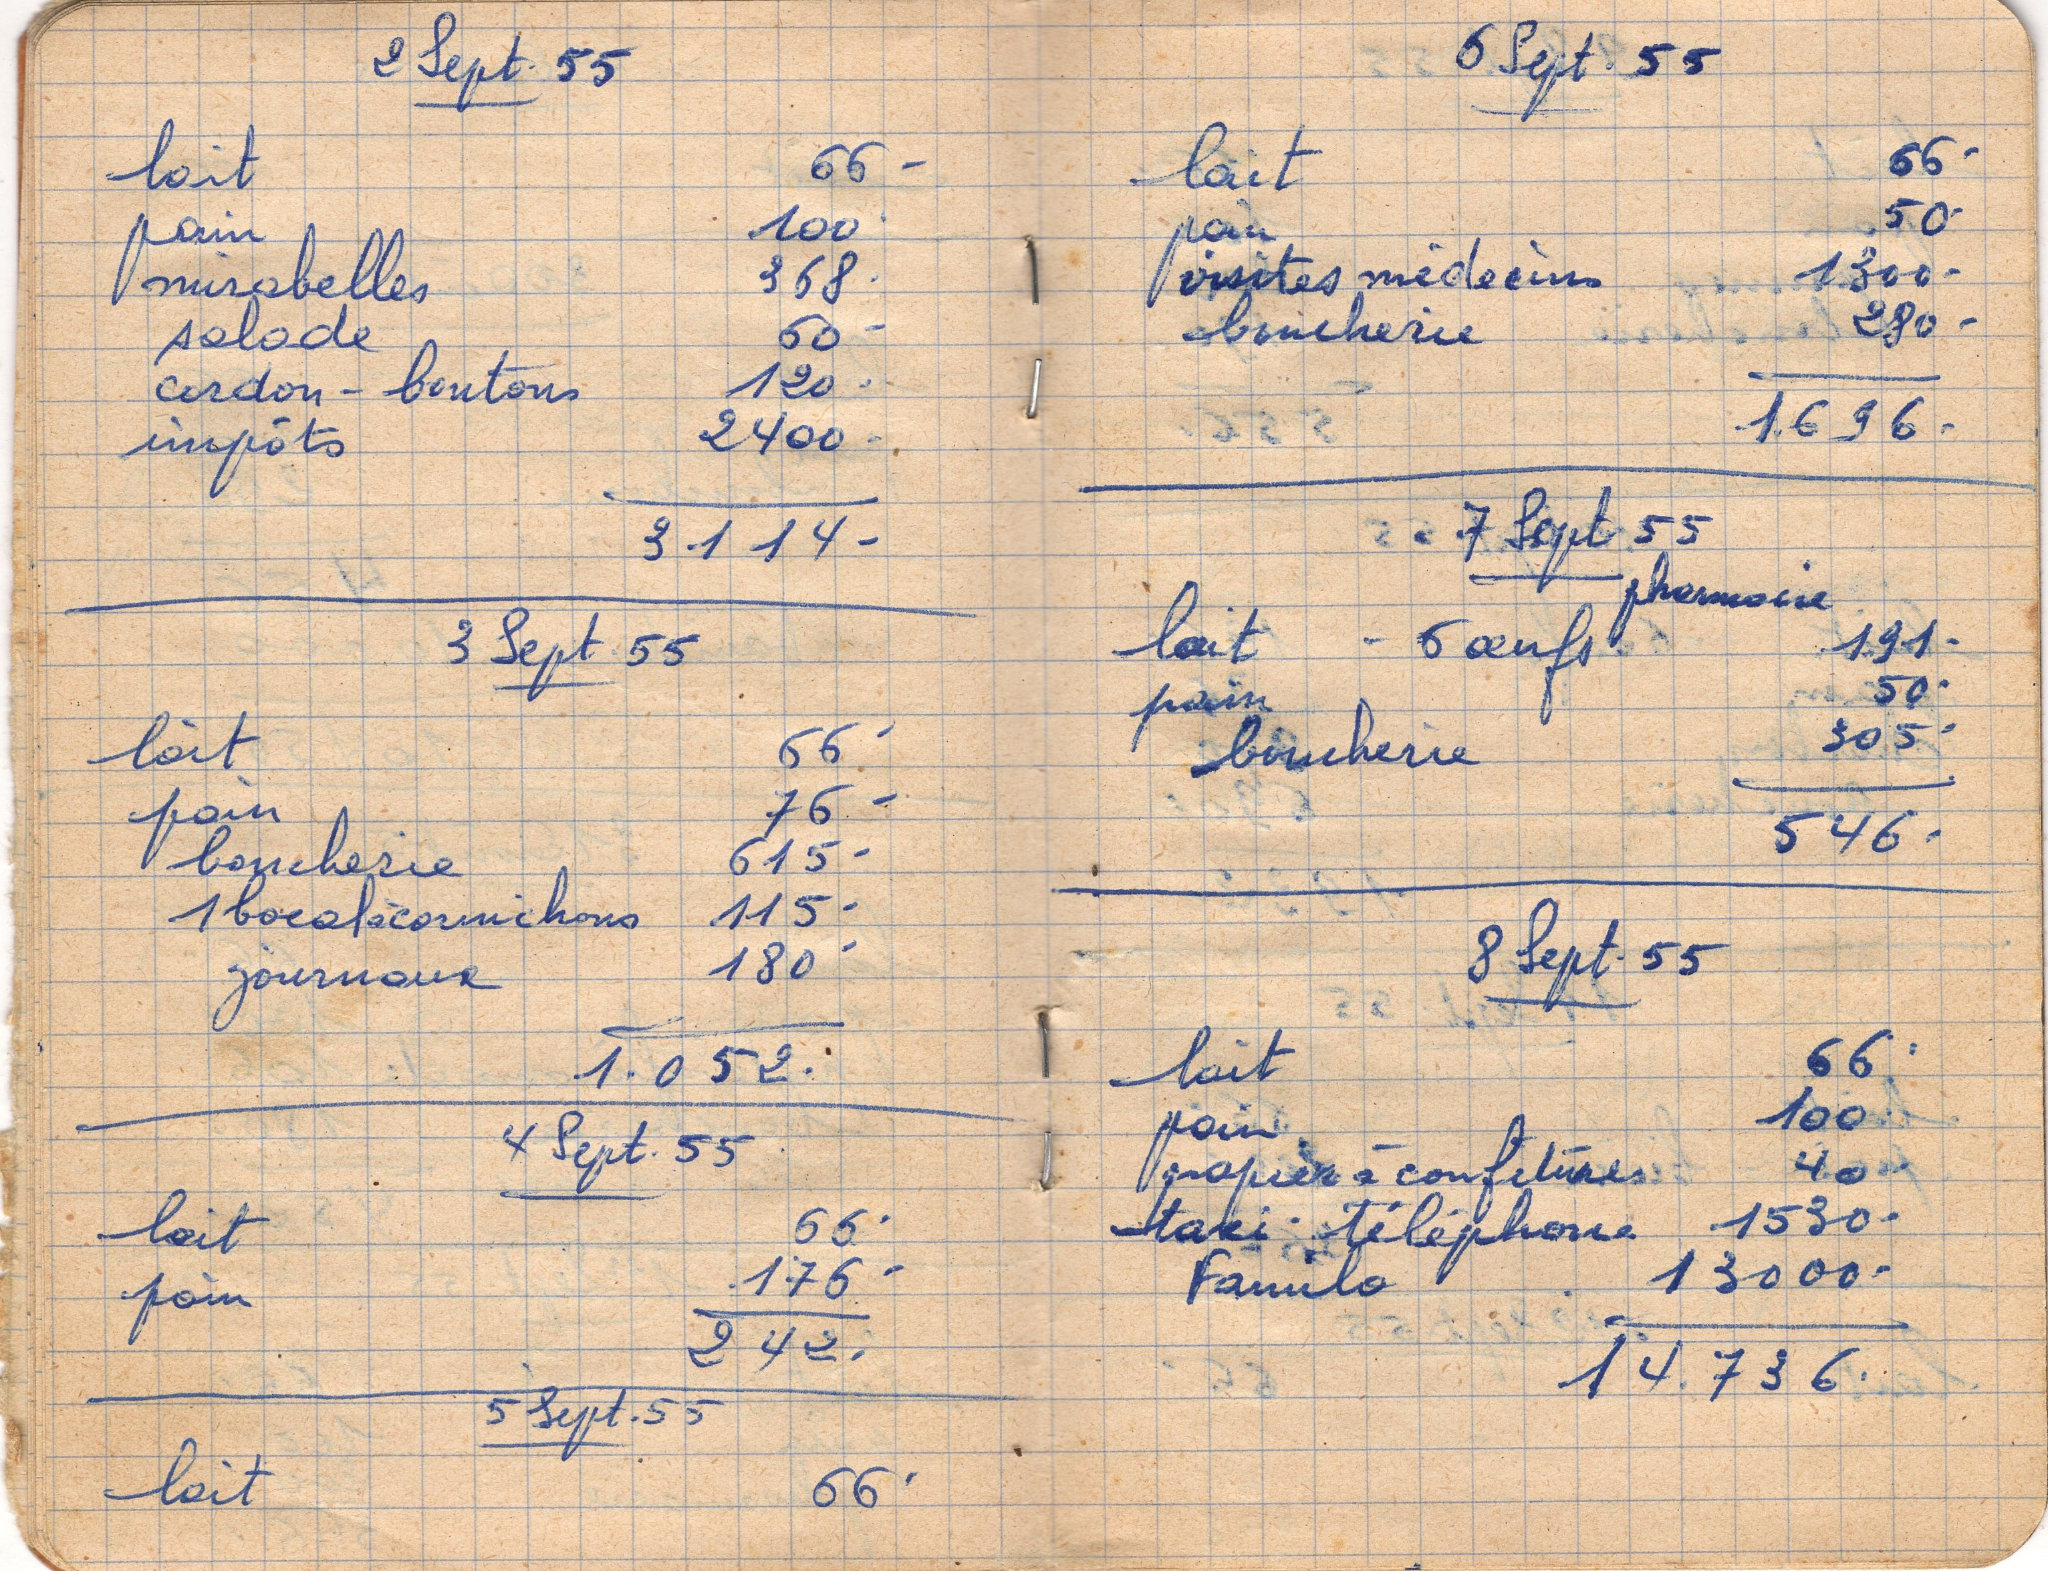 2 Sept. 55
lait 66-
pain 100-
mirabelles 368-
salade 60-
cordon - boutons 120-
impôts 2400-
3 1 1 4-
3 Sept. 55
lait 66-
pain 76-
boucherie 615-
1 bocal cornichons 115-
journaux 180-
1.052.
4 Sept. 55
lait 66-
pain 176-
242.
5 Sept. 55
lait 66-
6 Sept. 55
lait 66-
pain 50-
visites médecins 1300-
boucherie 280-
1.696-
7 Sept 55
pharmacie
lait - 6 œufs 191-
pain 50-
boucherie 305-
546-
8 Sept. 55
lait 66-
pain 100
papier à confitures 40-
taxi - téléphone 1530-
Famila 13000-
14.736.